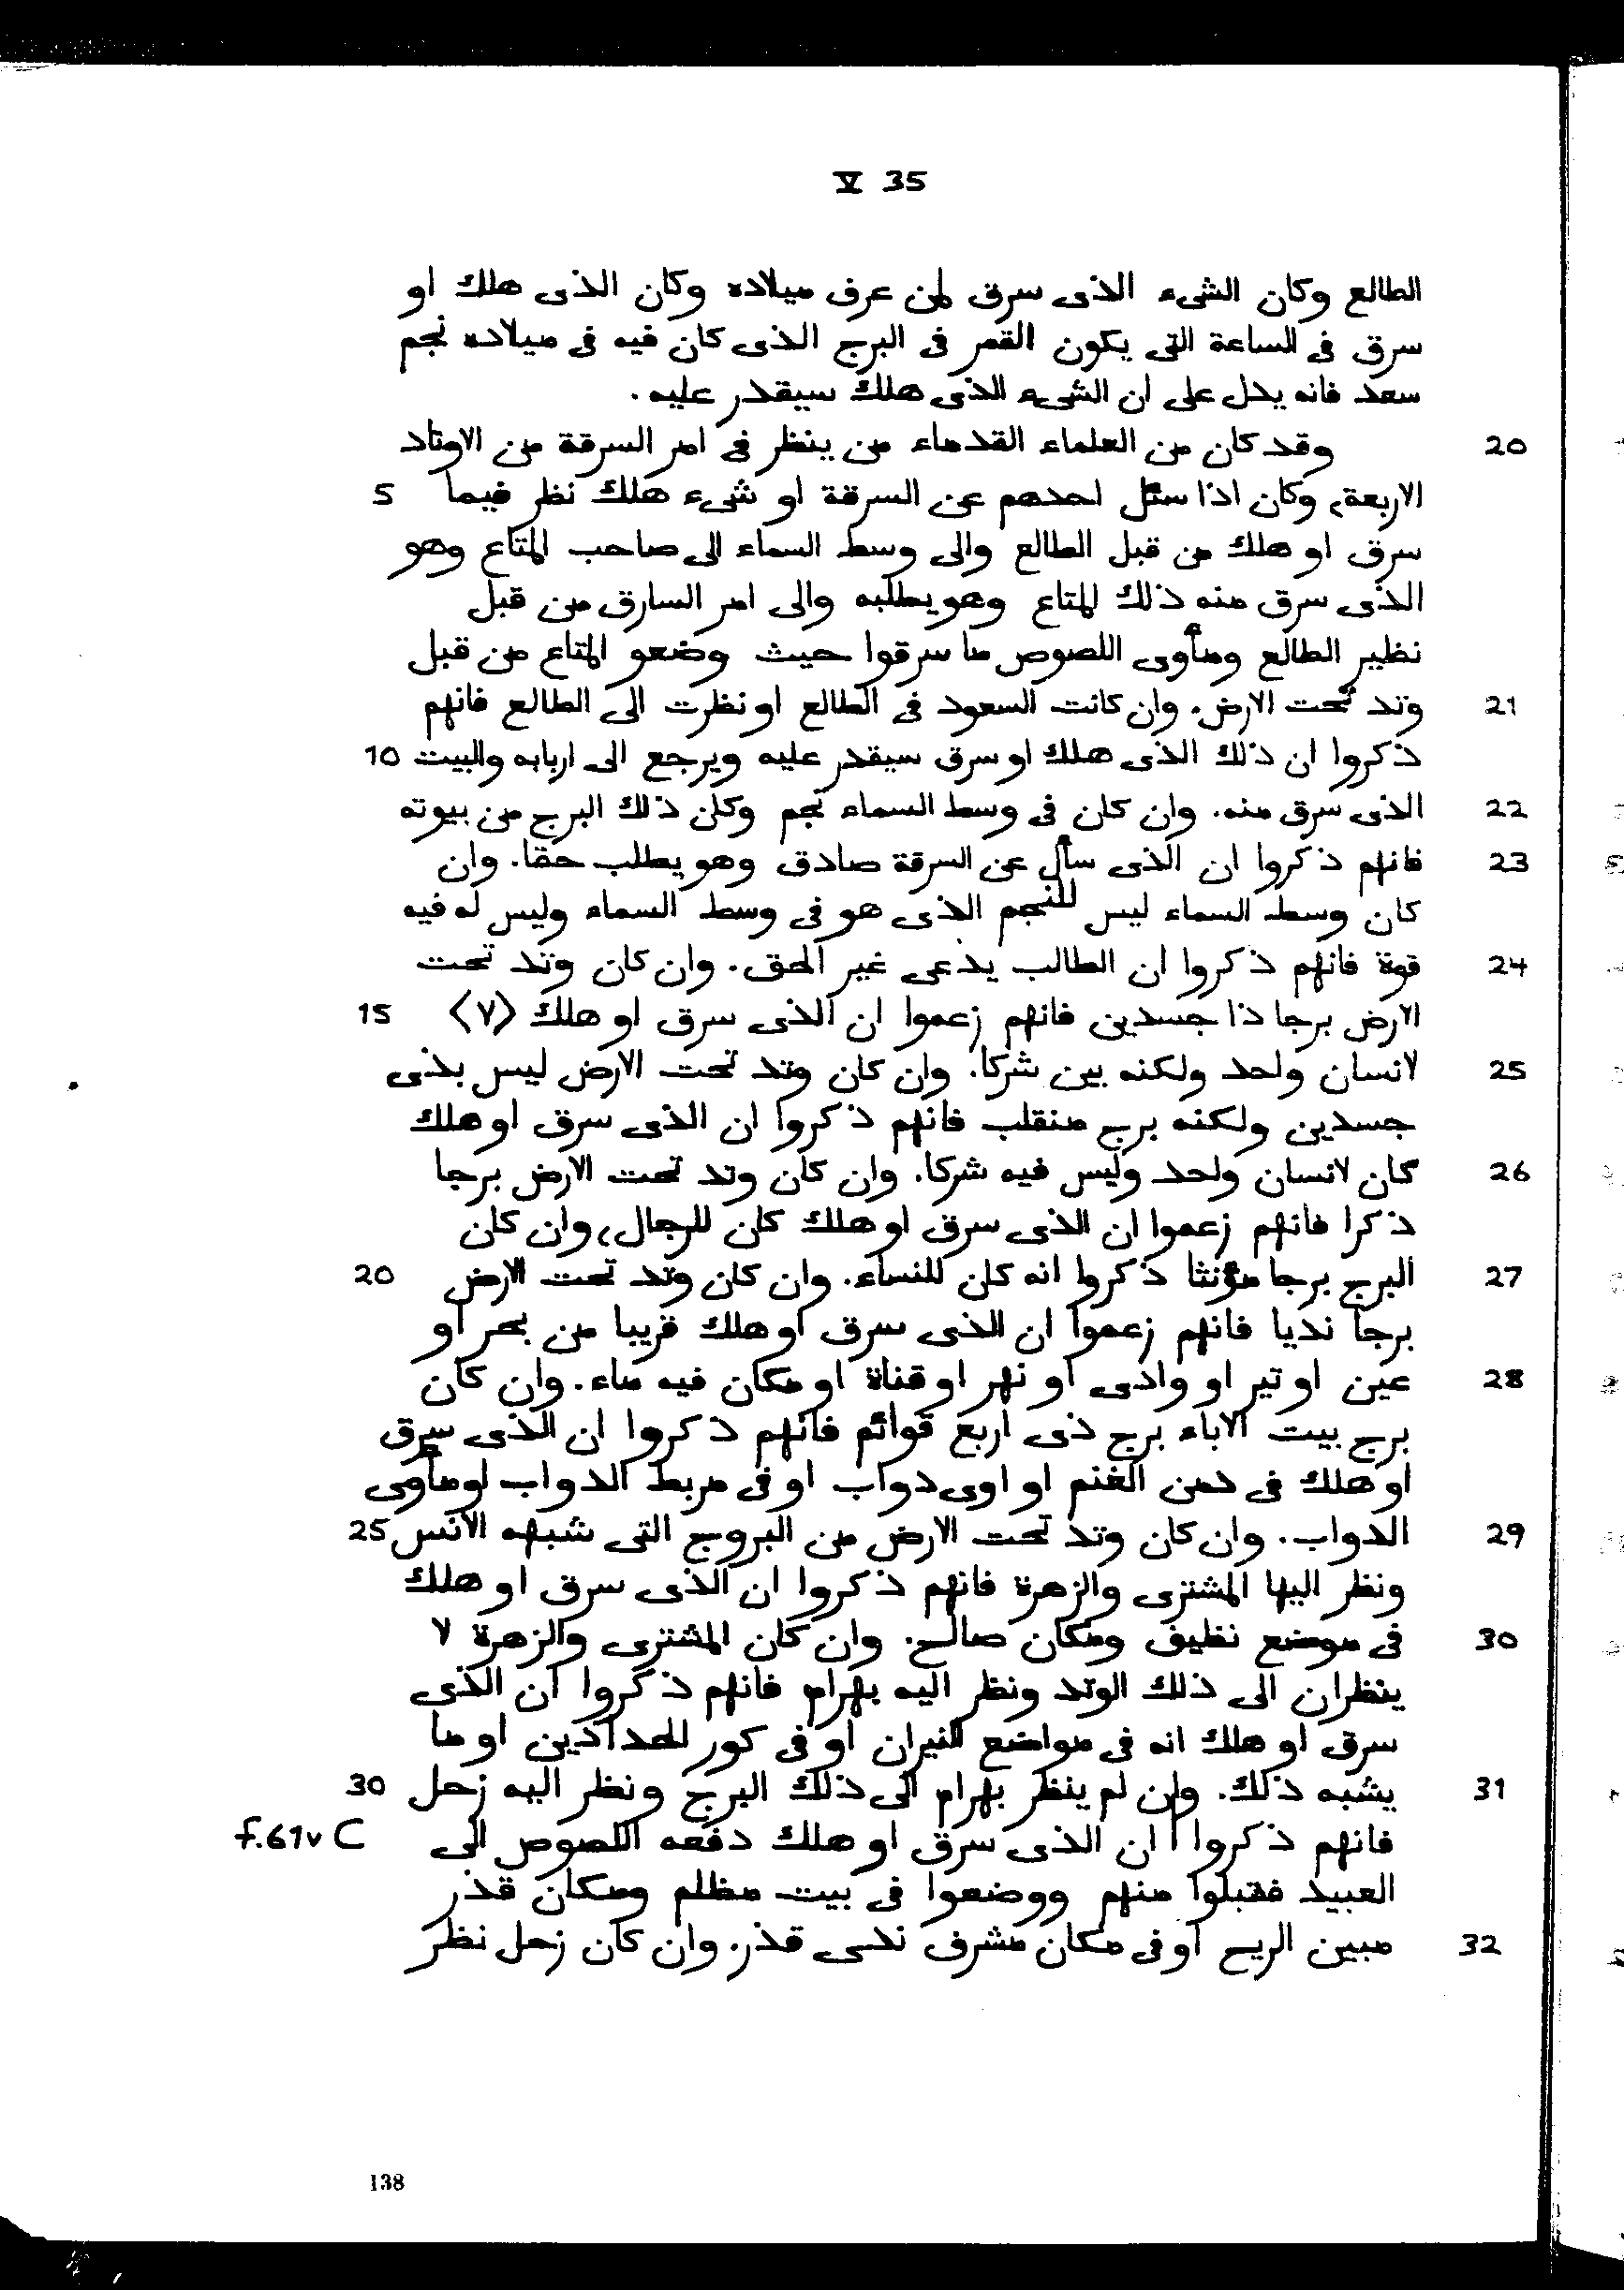 V 35
الطالع وكان الشىء الذى سرق لمن عرف ميلاده وكان الذى هلك او
سرق فى الساعة التى يكون القمر فى البرج الذى كان فيه فى ميلاده نجم
سعد فانه يدل على ان الشىء الذى هلك سيقدر عليه .
20 وقد كان من العلماء القدماء من ينظر فى امر السرقة من الاوتاد
الاربعة، وكان اذا سئل احدهم عن السرقة او شىء هلك نظر فيما 5
سرق او هلك من قبل الطالع والى وسط السماء الى صاحب المتاع وهو
الذى سرق منه ذلك المتاع وهو يطلبه والى امر السارق من قبل
نظير الطالع ومأوى اللصوص ما سرقوا حيث وضعو المتاع من قبل
21 وتد تحت الارض. وان كانت السعود فى الطالع او نظرت الى الطالع فانهم
ذكروا ان ذلك الذى هلك او سرق سيقدر عليه ويرجع الى اربابه والبيت 10
22 الذى سرق منه. وان كان فى وسط السماء نجم وكان ذلك البرج من بيوته
23 فانهم ذكروا ان الذى سأل عن السرقة صادق وهو يطلب حقا. وان
كان وسط السماء ليس للنجم الذى هو فى وسط السماء وليس له فيه
24 قوة فانهم ذكروا ان الطالب يدعى غير الحق. وان كان وتد تحت
الارض برجا ذا جسدين فانهم زعموا ان الذى سرق او هلك ⟨لا⟩ 15
25 لانسان واحد ولكنه بين شركا. وان كان وتد تحت الارض ليس بذى
جسدين ولكنه برج منقلب فانهم ذكروا ان الذى سرق او هلك
26 كان لانسان واحد وليس فيه شركا. وان كان وتد تحت الارض برجا
ذكرا فانهم زعموا ان الذى سرق او هلك كان للرجال، وان كان
27 البرج برجا مؤنثا ذكروا انه كان للنساء. وان كان وتد تحت الارض 20
برجا نديا فانهم زعموا ان الذى سرق او هلك قريبا من بحر او
28 عين او تير او وادى او نهر او قناة او مكان فيه ماء. وان كان
برج بيت الاباء برج ذى اربع قوائم فانهم ذكروا ان الذى سرق
او هلك فى دمن الغنم او اوى دواب او فى مربط الدواب او مأوى
29 الدواب. وان كان وتد تحت الارض من البروج التى شبهه الانس 25
ونظر اليها المشترى والزهرة فانهم ذكروا ان الذى سرق او هلك
30 فى موضع نظيف ومكان صالح. وان كان المشترى والزهرة لا
ينظران الى ذلك الوتد ونظر اليه بهرام فانهم ذكروا ان الذى
سرق او هلك انه فى مواضع النيران او فى كور الحدادين او ما
31 يشبه ذلك. وان لم ينظر بهرام الى ذلك البرج ونظر اليه زحل 30
فانهم ذكروا | ان الذى سرق او هلك دفعه اللصوص الى f.61v C
العبيد فقبلوا منهم ووضعوا فى بيت مظلم ومكان قذر
32 مبين الريح او فى مكان مشرف ندى قذر. وان كان زحل نظر
138